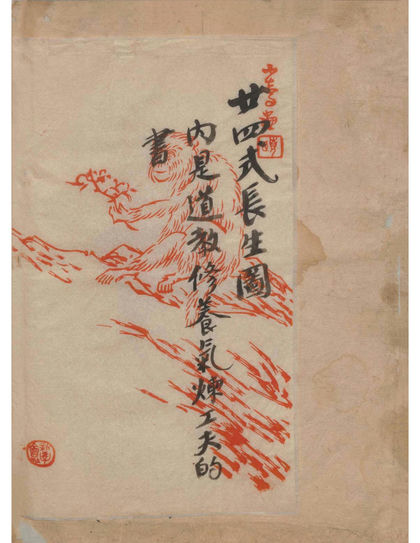 廿四式長生圖
內是道教修養氣煉工夫的
書